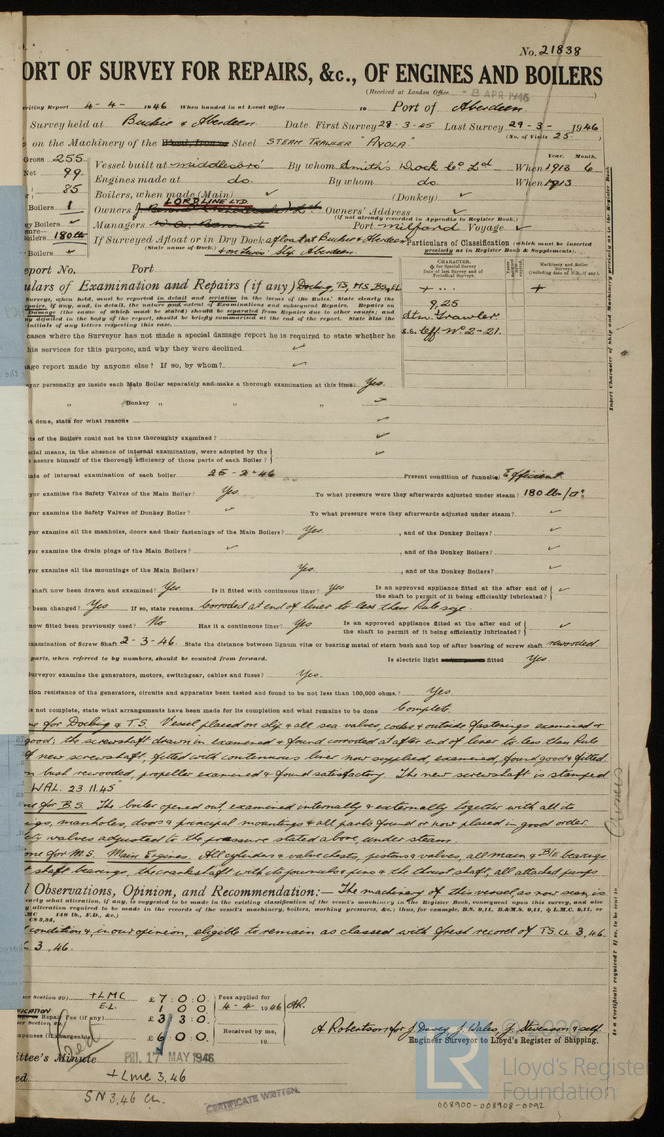 No. 21838
ORT OF SURVEY FOR REPAIRS, &c., OF ENGINES AND BOILERS
(Received at London Office - 8 APR 1946 )
writing Report 4-4- 1946 When handed in at Local Office 19 Port of Aberdeen
Survey held at Buckie & Aberdeen Date First Survey 28-3-45 Last Survey 29-3- 1946
(No. of Visits 25)
on the Machinery of the Steel STEAM TRAWLER "AVOLA"
Gross 255 Vessel built at Middlesbro' By whom Smith's Dock Co Ld When 1913 6
Year. Month.
Net 99 Engines made at do. By whom do. When 1913
85 Boilers, when made (Main) ✓ (Donkey) ✓
Boilers 1 Owners LORD LINE LTD. Owners' Address ✓
(if not already recorded in Appendix to Register Book.)
Managers Port Milford Voyage ✓
Boilers 180 lb If Surveyed Afloat or in Dry Dock afloat at Buckie & Aberdeen
(State name of Dock.) & on Slip Aberdeen.
Particulars of Classification (which must be inserted precisely as in Register Book & Supplements).
CHARACTER.
for Special Survey
Date of last Survey and of Periodical Surveys.
Machinery and Boiler Surveys
(including date of N.B., if any).
+ ...
+
9,25
Stm Trawler
Insert Character of Ship and Machinery precisely as in the Register Book
eport No. Port
ulars of Examination and Repairs (if any) Docking, TS, M.S. BS, EL
Surveys, when held, must be reported in detail and seriatim in the terms of the Rules. State clearly the
Damage (the cause of which must be stated) should be separated from Repairs due to other causes; and
initials of any letters respecting this case.
cases where the Surveyor has not made a special damage report he is required to state whether he
his services for this purpose, and why they were declined ✓
age report made by anyone else? If so, by whom? ✓
yor personally go inside each Main Boiler separately and make a thorough examination at this time? Yes.
" Donkey " " ✓
t done, state for what reasons ✓
ts of the Boilers could not be thoroughly examined? ✓
cial means, in the absence of internal examination, were adopted by the
assure himself of the thorough efficiency of those parts of each Boiler? ✓
ate of internal examination of each boiler 25-2-46 Present condition of funnel(s) Efficient
yor examine the Safety Valves of the Main Boiler? Yes To what pressure were they afterwards adjusted under steam? 180 lb/□"
yor examine the Safety Valves of Donkey Boiler? ✓ To what pressure were they afterwards adjusted under steam? ✓
yor examine all the manholes, doors and their fastenings of the Main Boilers? Yes. , and of the Donkey Boilers? ✓
yor examine the drain plugs of the Main Boilers? ✓ , and of the Donkey Boilers? ✓
yor examine all the mountings of the Main Boilers? Yes. , and of the Donkey Boilers? ✓
shaft now been drawn and examined? Yes Is it fitted with continuous liner? Yes Is an approved appliance fitted at the after end of the shaft to permit of it being efficiently lubricated? ✓
been changed? Yes If so, state reasons Corroded at end of liner to less than Rule size.
now fitted been previously used? No Has it a continuous liner? Yes Is an approved appliance fitted at the after end of the shaft to permit of it being efficiently lubricated? ✓
examination of Screw Shaft 2-3-46. State the distance between lignum vitæ or bearing metal of stern bush and top of after bearing of screw shaft rewooded
parts, when referred to by numbers, should be counted from forward. Is electric light fitted Yes
Surveyor examine the generators, motors, switchgear, cables and fuses? Yes.
tion resistance of the generators, circuits and apparatus been tested and found to be not less than 100,000 ohms? Yes
is not complete, state what arrangements have been made for its completion and what remains to be done Complete
ne for Docking & T.S. Vessel placed on slip & all sea valves, cocks & outside fastenings examined &
good; the screwshaft drawn in examined & found corroded at after end of liner to less than Rule
f new screwshaft, fitted with continuous liner now supplied, examined, found good & fitted
n bush rewooded, propeller examined & found satisfactory. The new screwshaft is stamped
WAL. 23.11.45
ne for B.S. The boiler opened out, examined internally & externally together with all its
ngs, manholes, doors & principal mountings & all parts found or now placed in good order.
ety valves adjusted to the pressure stated above, under steam.
one for M.S. Main Engines. All cylinders & valve chests, pistons & valves, all main & B/E bearings
t shaft bearings, the crankshaft with its journals & pins & the thrust shaft, all attached pumps
l Observations, Opinion, and Recommendation:— The machinery of this vessel, as now seen is
early what alteration, if any, is suggested to be made in the existing classification of the vessel's machinery in the Register Book, consequent upon this survey, and also
y alteration required to be made in the records of the vessel's machinery, boilers, working pressures, &c.; thus, for example, B.S. 9,11, B.&M.S. 9,11, or L.M.C. 9,11, or
140 lb., F.D., &c.)
condition &, in our opinion, eligible to remain as classed with fresh record of TS. CL 3,46.
3,46.
+LMC £ 7 : 0 : 0. Fees applied for
E.L. 1 0 0 4-4- 1946 AR.
Repair Fee (if any) £ 3 : 3 : 0. Received by me,
xpenses (if chargeable) £ 6 : 0 : 0. 19
A Robertson for J. Davey, J. Wales, J. Stevenson & self
Engineer Surveyor to Lloyd's Register of Shipping.
ittee's Minute FRI. 17 MAY 1946
ed +LMC 3,46
SN 3,46 CL.
CERTIFICATE WRITTEN.
Is a Certificate required? If so, to be sent to
Owners
© 2020
LR Lloyd's Register
Foundation
008900-008908-0092